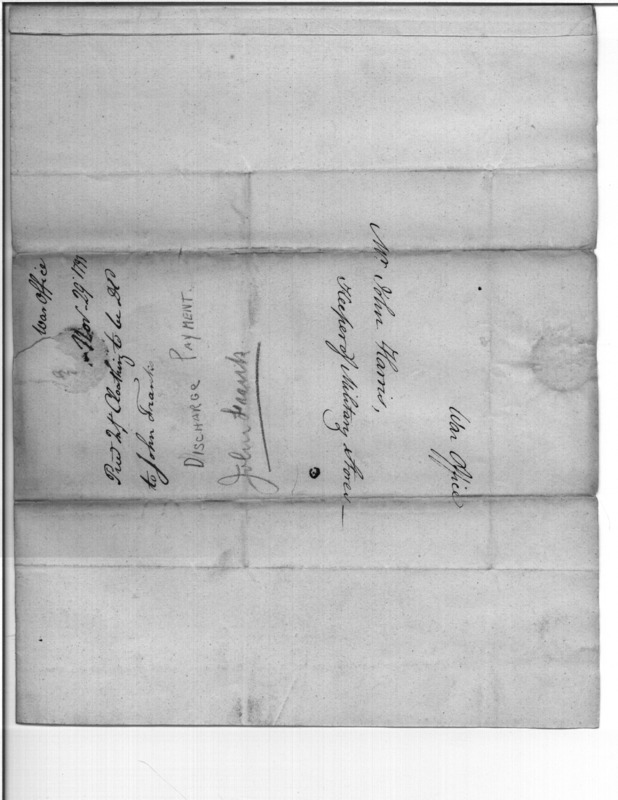 War Office
Mr John Harris,
Keeper of Military Stores
War Office
Nov. 29 1791
Clothing to be
to John Frank
DISCHARGE PAYMENT.
John Frank